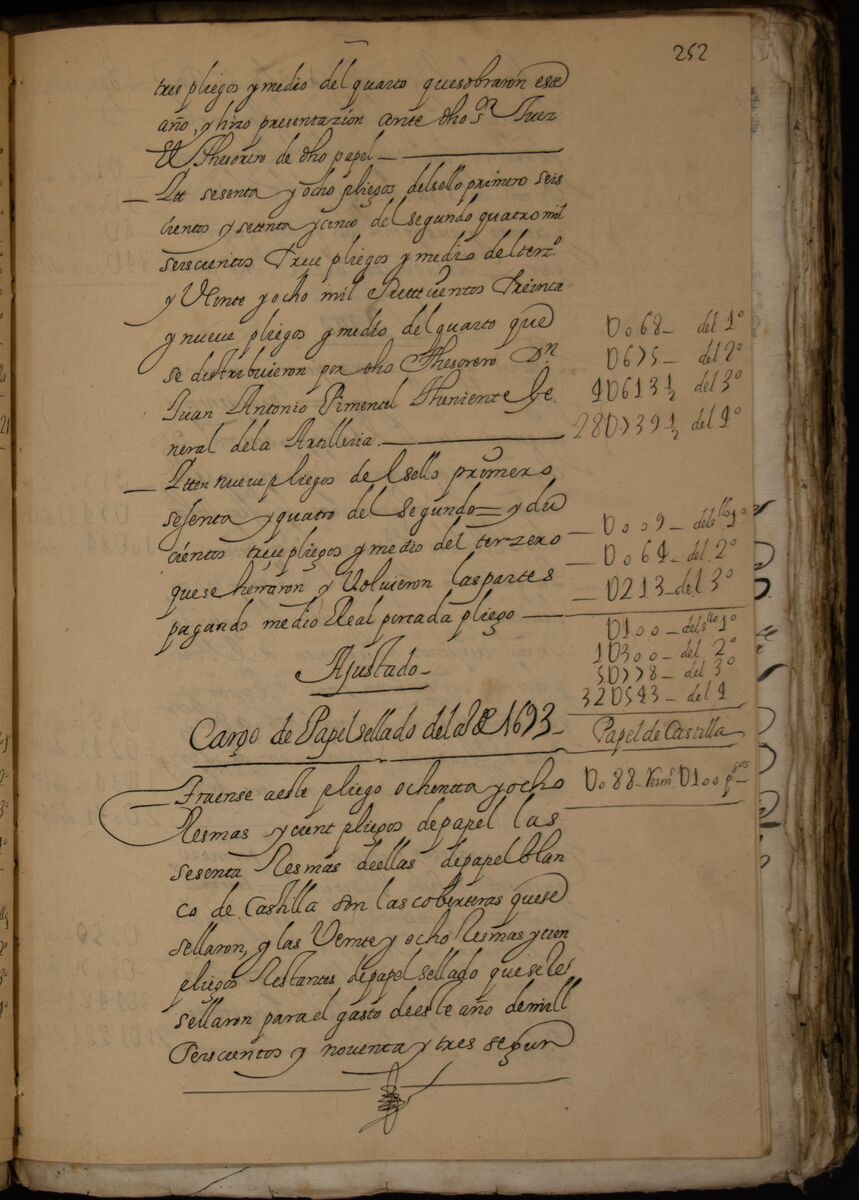 252
tres pliegos y medio del quarto que sobraron este
año, y hizo presentazion ante dho Sr Juez
El Thesorero de dho papel
Itt sesenta y ocho pliegos del sello primero seis
cientos y setenta y cinco del segundo quatro mil
seiscientos trece pliegos y medio del terzº
y Veinte y ocho mil Settecientos treinta
y nueve pliegos y medio del quarto que
se distribuieron por dho Thesorero Dn
Juan Antonio Pimentel Theniente Ge
neral de la Artilleria
D068 del 1º
D675 del 2º
4D613½ del 3º
28D739½ del 4º
Itten nueve pliegos del sello primero
sesenta y quatro del segundo y du
cientos trece pliegos y medio del terzero
que se herraron y Volvieron las partes
pagando medio Real por cada pliego
D009 del sllo 1º
D064 del 2º
D213 del 3º
Ajustado
D100 del sllo 1º
1D300 del 2º
5D778 del 3º
32D543 del 4
Cargo de Papel sellado del año de 1693
Papel de Castilla
Traense a este pliego ochentta y ocho
Resmas y cient pliegos de papel las
sesenta Resmas de ellas de papel blan
co de Castilla son las cobixteras que se
sellaron, y las Veinte y ocho Resmas y cien
pliegos Restantes de papel sellado que se les
sellaron para el gasto de este año de mill
Seiscientos y noventa y tres segun
D088 Resms D100 pgos